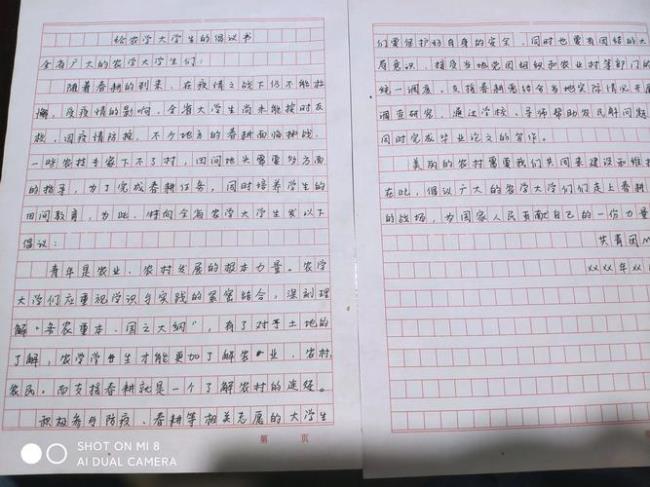 给农学大学生的倡议书
全省广大的农学大学生们:
随着春耕的到来,在疫情之战下仍不能松
懈,受疫情的影响,全省大学生尚未能按时反
校,因疫情防控,不少地方的春耕面临挑战,
一时农村专家下不了村,田间地头需要多方面
的指导,为了完成春耕任务,同时培养学生的
田间教育,为此,特向全省农学大学生发以下
倡议:
青年是农业、农村发展的根本力量。农学
大学们应重视学识与实践的紧密结合,深刻理
解“务农重本、国之大纲”,有了对于土地的
了解,农学学生才能更加了解农业、农村、
农民。而支援春耕就是一个了解农村的途径。
积极参与防疫、春耕等相关志愿的大学生
第 页
SHOT ON MI 8
AI DUAL CAMERA
们要保护好自身的安全,同时也要有团结的大
局意识,接受当地党团组织和农业村等部门的
统一调度。支援春耕要结合当地实际情况开展
调查研究,通过学校、导师帮助农民解问题
同时完成毕业论文的写作。
美丽的农村需要我们共同来建设和维护
在此,倡议广大的农学大学们们走上春耕
的战场,为国家人民贡献自己的一份力量
共青团
XX年XX